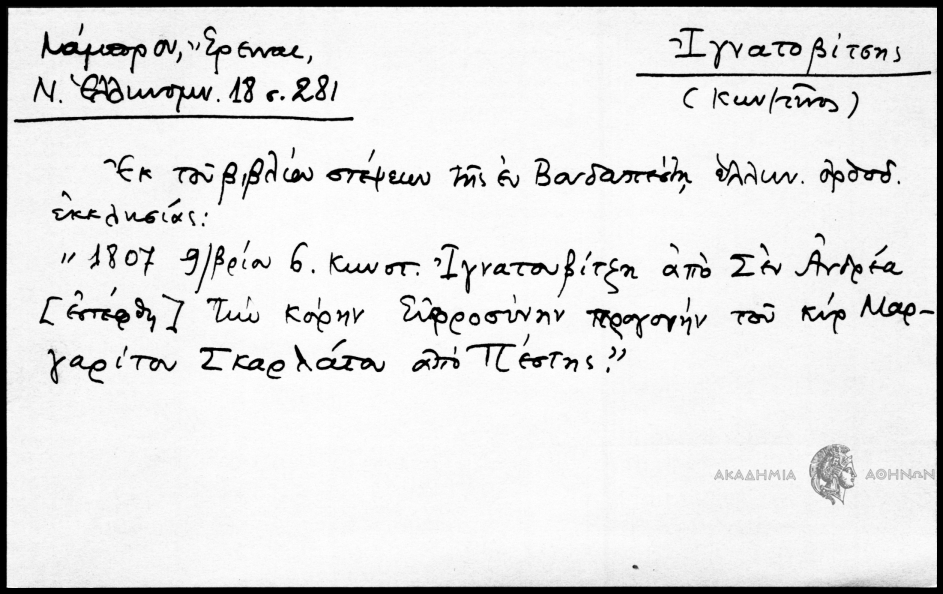 Λάμπρου, "Ερευναι,
Ν. Ἑλληνομν. 18 σ. 281
Ἰγνατοβίτσης
(Κων/τῖνος)
Ἐκ τοῦ βιβλίου στέψεων τῆς ἐν Βουδαπέστῃ ἑλλην. ὀρθοδ.
ἐκκλησίας:
"1807 9/βρίου 6. Κωνστ. Ἰγνατουβίτζη ἀπὸ Σὲν Ἀνδρέα
[ἐστέφθη] τὴν κόρην Εὐφροσύνην προγονὴν τοῦ κὺρ Μαρ-
γαρίτου Σκαρλάτου ἀπὸ Πέστης."
ΑΚΑΔΗΜΙΑ ΑΘΗΝΩΝ